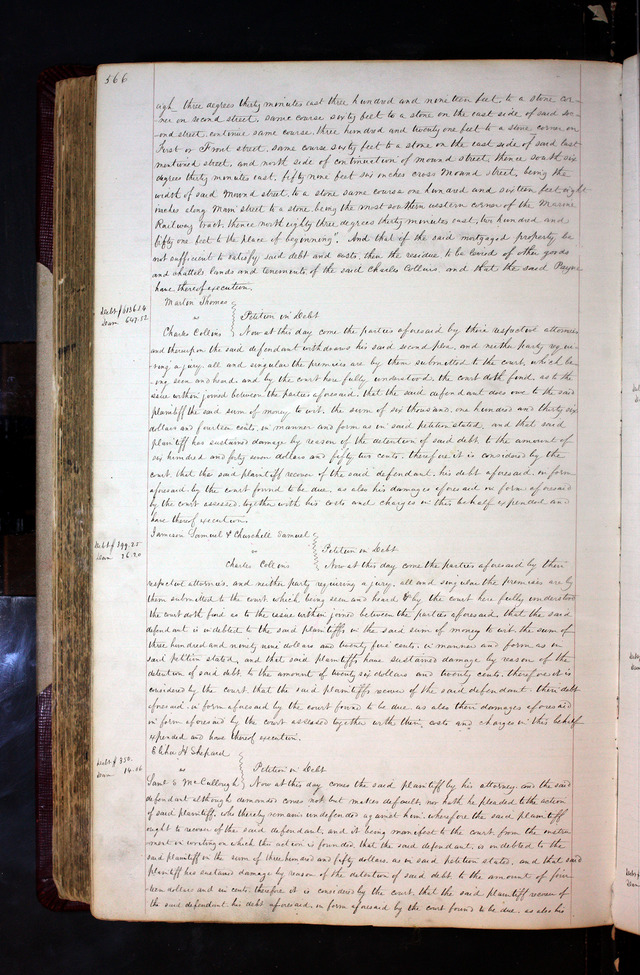 366
eigh three degrees thirty minutes east three hundred and nineteen feet, to a stone cor-
ner on second street, same course sixty feet to a stone on the east side of said sec-
ond street, continue same course, three hundred and twenty one feet to a stone corner on
First or Front street, same course sixty feet to a stone on the east side of said last
mentioned street, and north side of continuation of mound street, thence south six
degrees thirty minutes east, fifty nine feet six inches cross Mound street, being the
width of said Mound street, to a stone same course one hundred and sixteen feet eight
inches along Main street to a stone, being the most southern western corner of the Marine
Railway tract, thence north eighty three degrees thirty minutes east, two hundred and
fifty one feet to the place of beginning". And that if the said mortgaged property be
not sufficient to satisfy said debt and costs, then the residue to be levied of other goods
and chattels lands and tenements of the said Charles Collins, and that the said Payne
have thereof execution.
Marton Thomas
Debt $6136.14
Dam 647.52
vs
Petition in Debt
Charles Collins
Now at this day come the parties aforesaid by their respective attornies
and thereupon the said defendant withdraws his said second plea, and neither party requi-
ring a jury, all and singular the premises are by them submitted to the court, which be-
ing seen and heard, and by the court here fully understood, the court doth find, as to the
issue within joined between the parties aforesaid, that the said defendant does owe to the said
plaintiff the said sum of money to wit, the sum of six thousand, one hundred and thirty six
dollars and fourteen cents, in manner and form as in said petition stated, and that said
plaintiff has sustained damage by reason of the detention of said debt, to the amount of
six hundred and forty seven dollars and fifty two cents, therefore it is considered by the
court, that the said plaintiff recover of the said defendant, his debt aforesaid, in form
aforesaid by the court found to be due, as also his damages aforesaid in form aforesaid
by the court assessed, together with his costs and charges in this behalf expended and
have thereof execution.
Jameson Samuel & Churchill Samuel
Debt $399.25
Dam 26.20
vs
Petition in Debt
Charles Collins
Now at this day come the parties aforesaid by their
respective attornies, and neither party requiring a jury, all and singular the premises are by
them submitted to the court, which being seen and heard & by the court here fully understood
the court doth find as to the issue within joined between the parties aforesaid, that the said
defendant is indebted to the said plaintiffs in the said sum of money to wit the sum of
three hundred and ninety nine dollars and twenty five cents, in manner and form as in
said petition stated, and that said plaintiffs have sustained damage by reason of the
detention of said debt to the amount of twenty six dollars and twenty cents, therefore it is
considered by the court, that the said plaintiffs recover of the said defendant their debt
aforesaid in form aforesaid by the court found to be due as also their damages aforesaid
in form aforesaid by the court assessed together with their costs and charges in this behalf
expended and have thereof execution.
Elihu H Shepard
Debt $350.
Dam 14.06
vs
Petition in Debt
Saml E McCullough
Now at this day comes the said plaintiff by his attorney, and the said
defendant although demanded comes not but makes default, nor hath he pleaded to the action
of said plaintiff, who thereby remains undefended against him, wherefore the said plaintiff
ought to recover of the said defendant, and it being manifest to the court, from the instru-
ment in writing on which the action is founded, that the said defendant, is indebted to the
said plaintiff in the sum of three hundred and fifty dollars, as in said petition stated, and that said
plaintiff has sustained damage by reason of the detention of said debt to the amount of four-
teen dollars and six cents, therefore it is considered by the court, that the said plaintiff recover of
the said defendant his debt aforesaid, in form aforesaid by the court found to be due, as also his